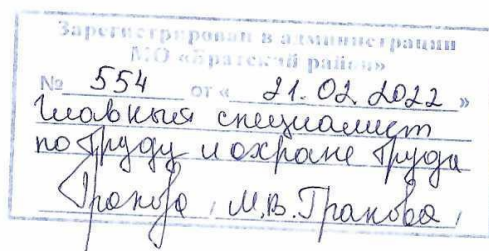 Зарегистрирован в администрации
МО «Братский район»
№ 554 от « 21.02.2022 »
Главный специалист
по труду и охране труда
М.В. Гранова